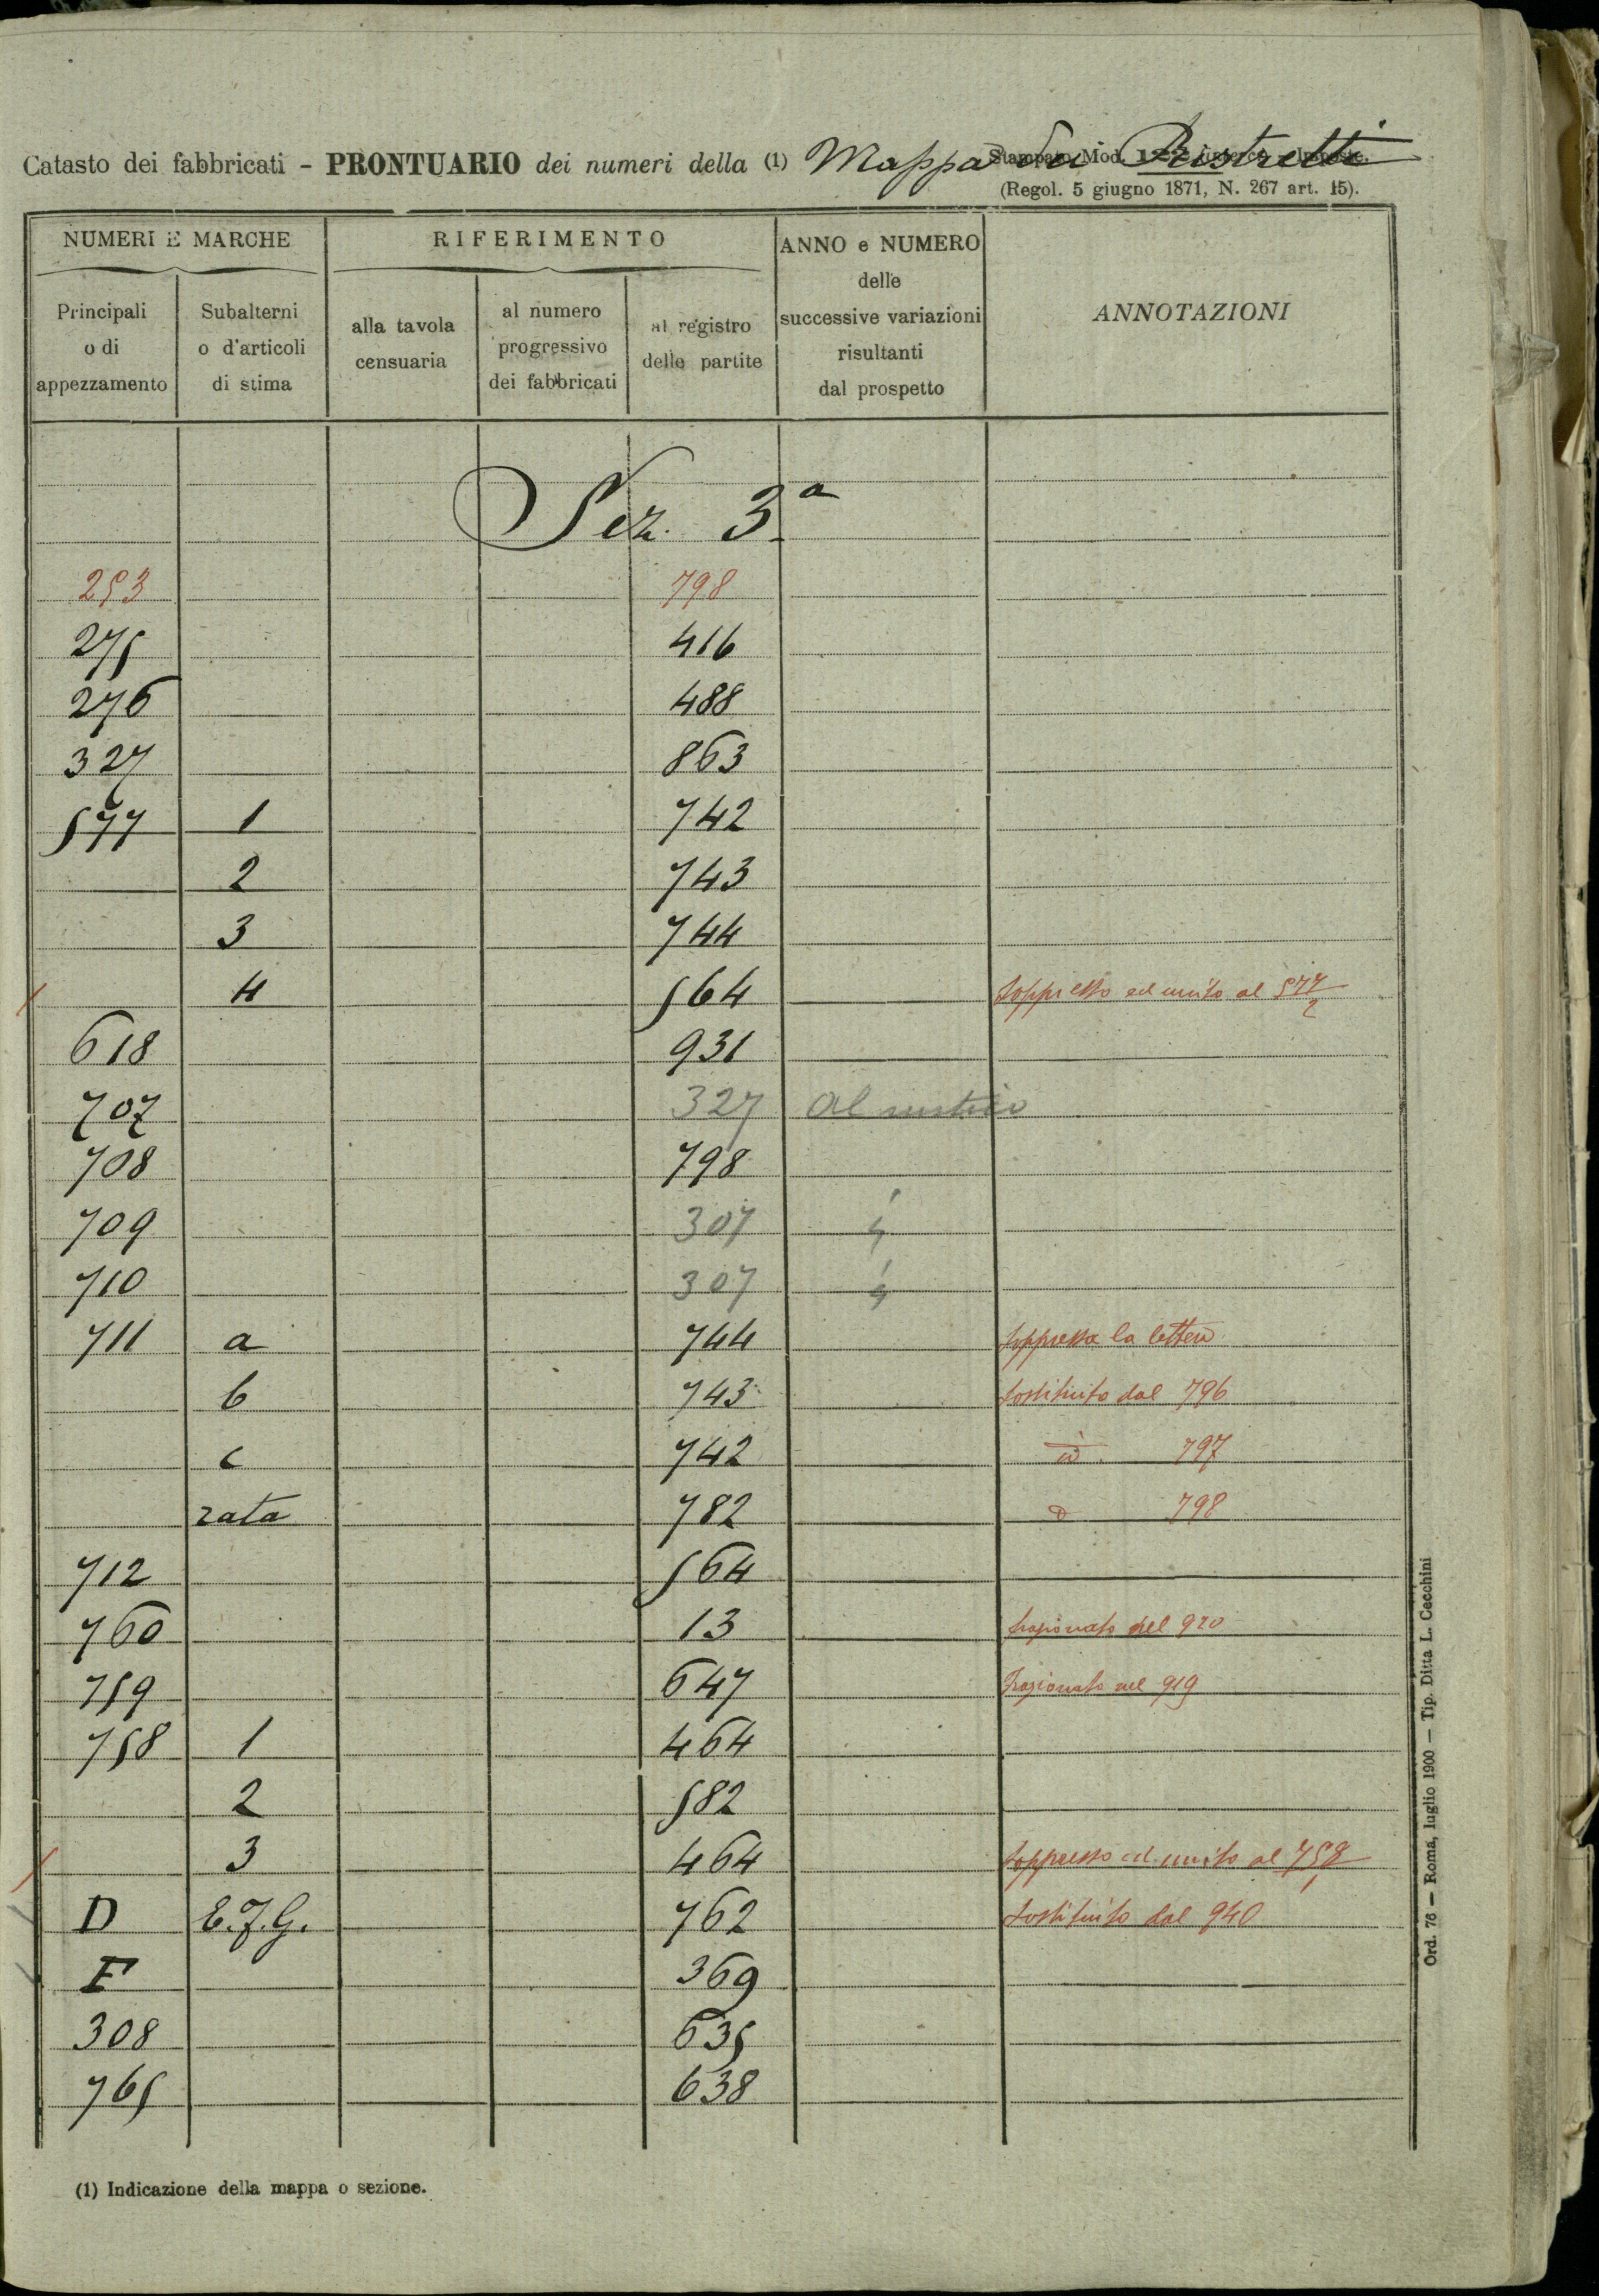 Catasto dei fabbricati - PRONTUARIO dei numeri della (1) Mappa dei Ristretti
Stampato Mod.
(Regol. 5 giugno 1871, N. 267 art. 15).
NUMERI E MARCHE
Principali
o di
appezzamento
Subalterni
o d'articoli
di stima
RIFERIMENTO
alla tavola
censuaria
al numero
progressivo
dei fabbricati
al registro
delle partite
ANNO e NUMERO
delle
successive variazioni
risultanti
dal prospetto
ANNOTAZIONI
Sez. 3a
253 798
275 416
276 488
327 863
577 1 742
2 743
3 744
4 564 soppresso ed unito al 577/2
618 931
707 327 al rustico
708 798
709 307
710 307
711 a 744 soppressa la lettera
b 743 sostituito dal 796
c 742 id. 797
rata 782 798
712 564
760 13 frazionato nel 920
759 647 frazionato nel 919
758 1 464
2 582
3 464 soppresso ed unito al 758/1
D E.F.G. 762 sostituito dal 940
F 369
308 635
765 638
(1) Indicazione della mappa o sezione.
Ord. 76 — Roma, luglio 1900 — Tip. Ditta L. Cecchini